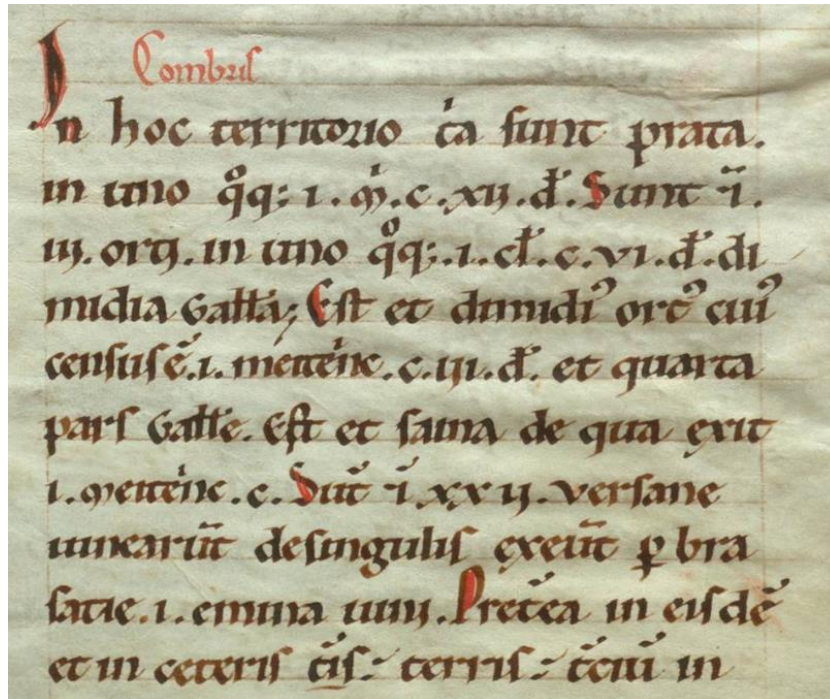 Combris
In hoc territorio t̾a sunt prata.
in uno q̊q; .i. m̾. c. xii. d̾. Sunt ī.
iii. orti. in uno q̊q; .i. cl̾. c. vi. d̾. di
midia Gallīa; Est et dimidiꝰ ortꝰ cuiꝰ
census ē .i. meiten̄c. c. iii. d̾. et quarta
pars Gallīe. Est et saina de qua exit
.i. meiten̄c. c. Sūt ī xxii. versane
uinearūt de singulis exeūt ꝑ bra
satie .i. emina uini. Pretēa in eisdē
et in ceteris t̄is terris t̄ciū in